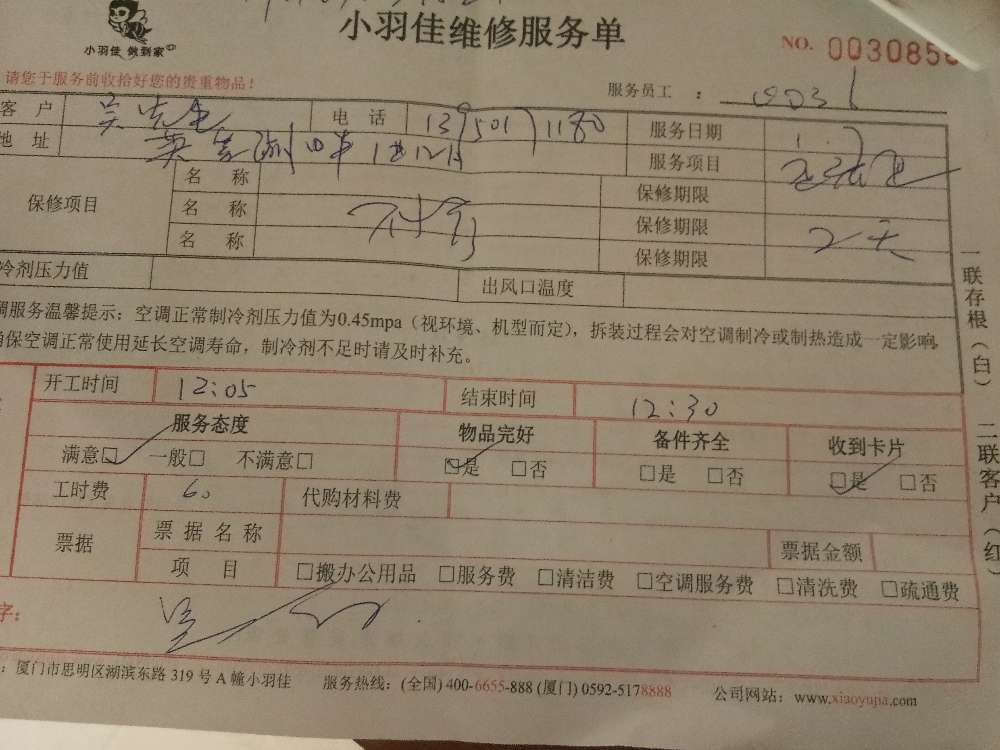 小羽佳 做到家
小羽佳维修服务单
NO. 003085
请您于服务前收拾好您的贵重物品!
服务员工 :
客 户 吴先生 电 话 服务日期
地 址 服务项目
保修项目 名 称 保修期限
名 称 保修期限 2天
名 称 保修期限
冷剂压力值 出风口温度
调服务温馨提示:空调正常制冷剂压力值为0.45mpa(视环境、机型而定),拆装过程会对空调制冷或制热造成一定影响,
确保空调正常使用延长空调寿命,制冷剂不足时请及时补充。
开工时间 12:05 结束时间 12:30
服务态度 物品完好 备件齐全 收到卡片
满意□ 一般□ 不满意□ □是 □否 □是 □否 □是 □否
工时费 60 代购材料费
票据 票 据 名 称 票据金额
项 目 □搬办公用品 □服务费 □清洁费 □空调服务费 □清洗费 □疏通费
字:
:厦门市思明区湖滨东路 319 号 A 幢小羽佳 服务热线:(全国) 400-6655-888 (厦门) 0592-5178888 公司网站:www.xiaoyupa.com
一联存根(白)
二联客户(红)